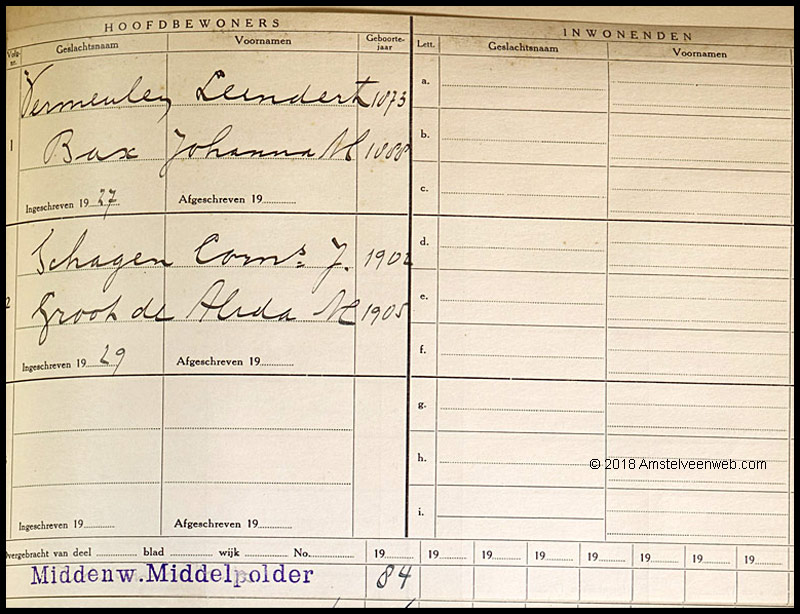 HOOFDBEWONERS
INWONENDEN
Volg- nr. Geslachtsnaam Voornamen Geboorte- jaar
Lett. Geslachtsnaam Voornamen
Vermeulen Leendert 1873
a.
1 Bax Johanna M 1888
b.
Ingeschreven 19 27 Afgeschreven 19
c.
Schagen Corns. J. 1902
d.
2 Groot de Alida M 1905
e.
Ingeschreven 19 29 Afgeschreven 19
f.
g.
h.
© 2018 Amstelveenweb.com
Ingeschreven 19 Afgeschreven 19
i.
Overgebracht van deel blad wijk No. 19 19 19 19 19 19 19 19
Middenw. Middelpolder 84